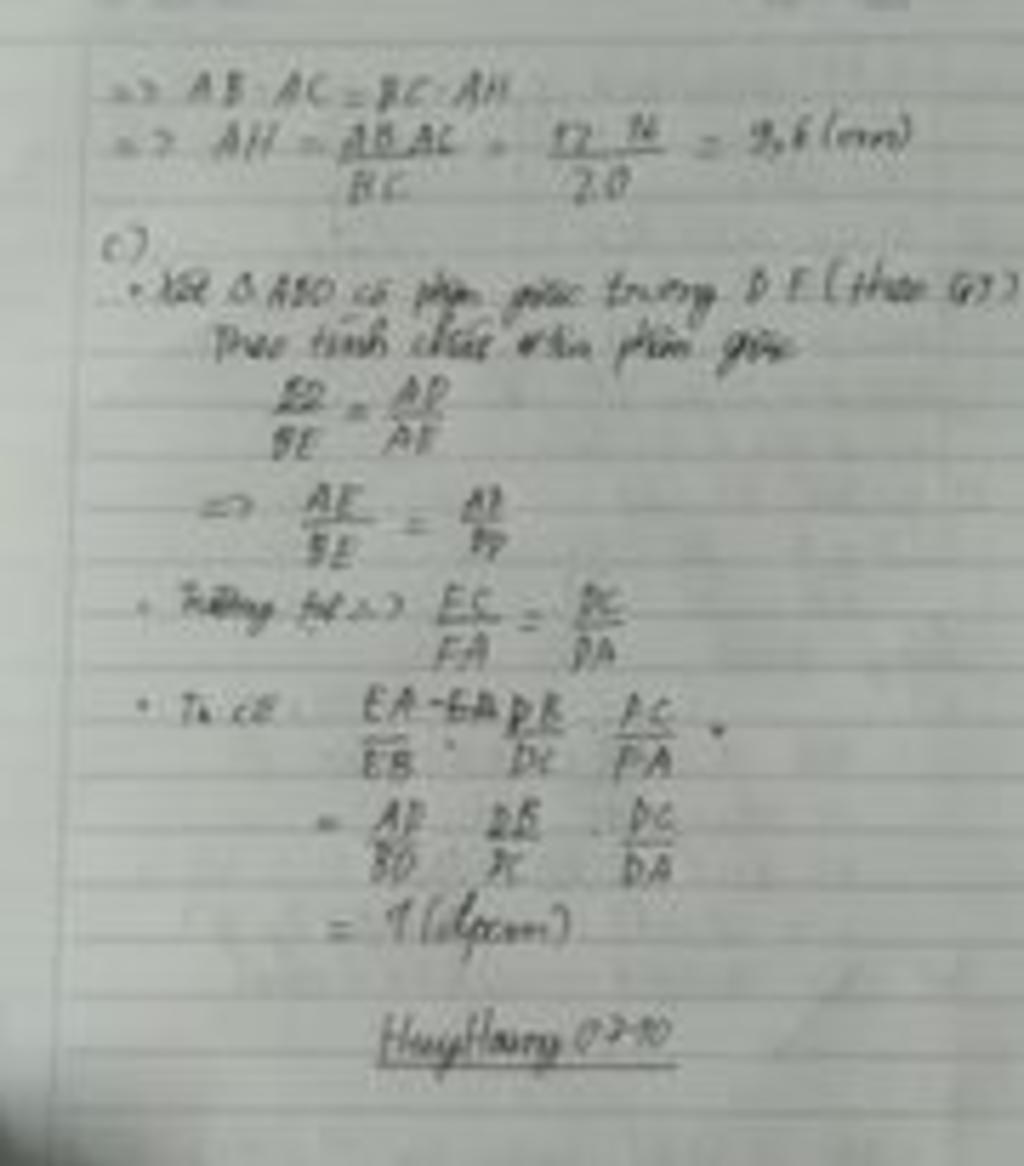 => AB . AC = BC . AH
=> AH = AB.AC / BC = 12 . 16 / 20 = 9,6 (mm)
c)
• Xét Δ ABD có phân giác trong DE (theo GT)
Theo tính chất phân giác
BD / BE = AD / AE
=> AE / BE = AD / BD
• Tương tự => FC / FA = DC / DA
• Ta có: EA / EB . DB / DC . FC / FA
= AD / BD . DB / DC . DC / DA
= 1 (đpcm)
HuyHoang 0710